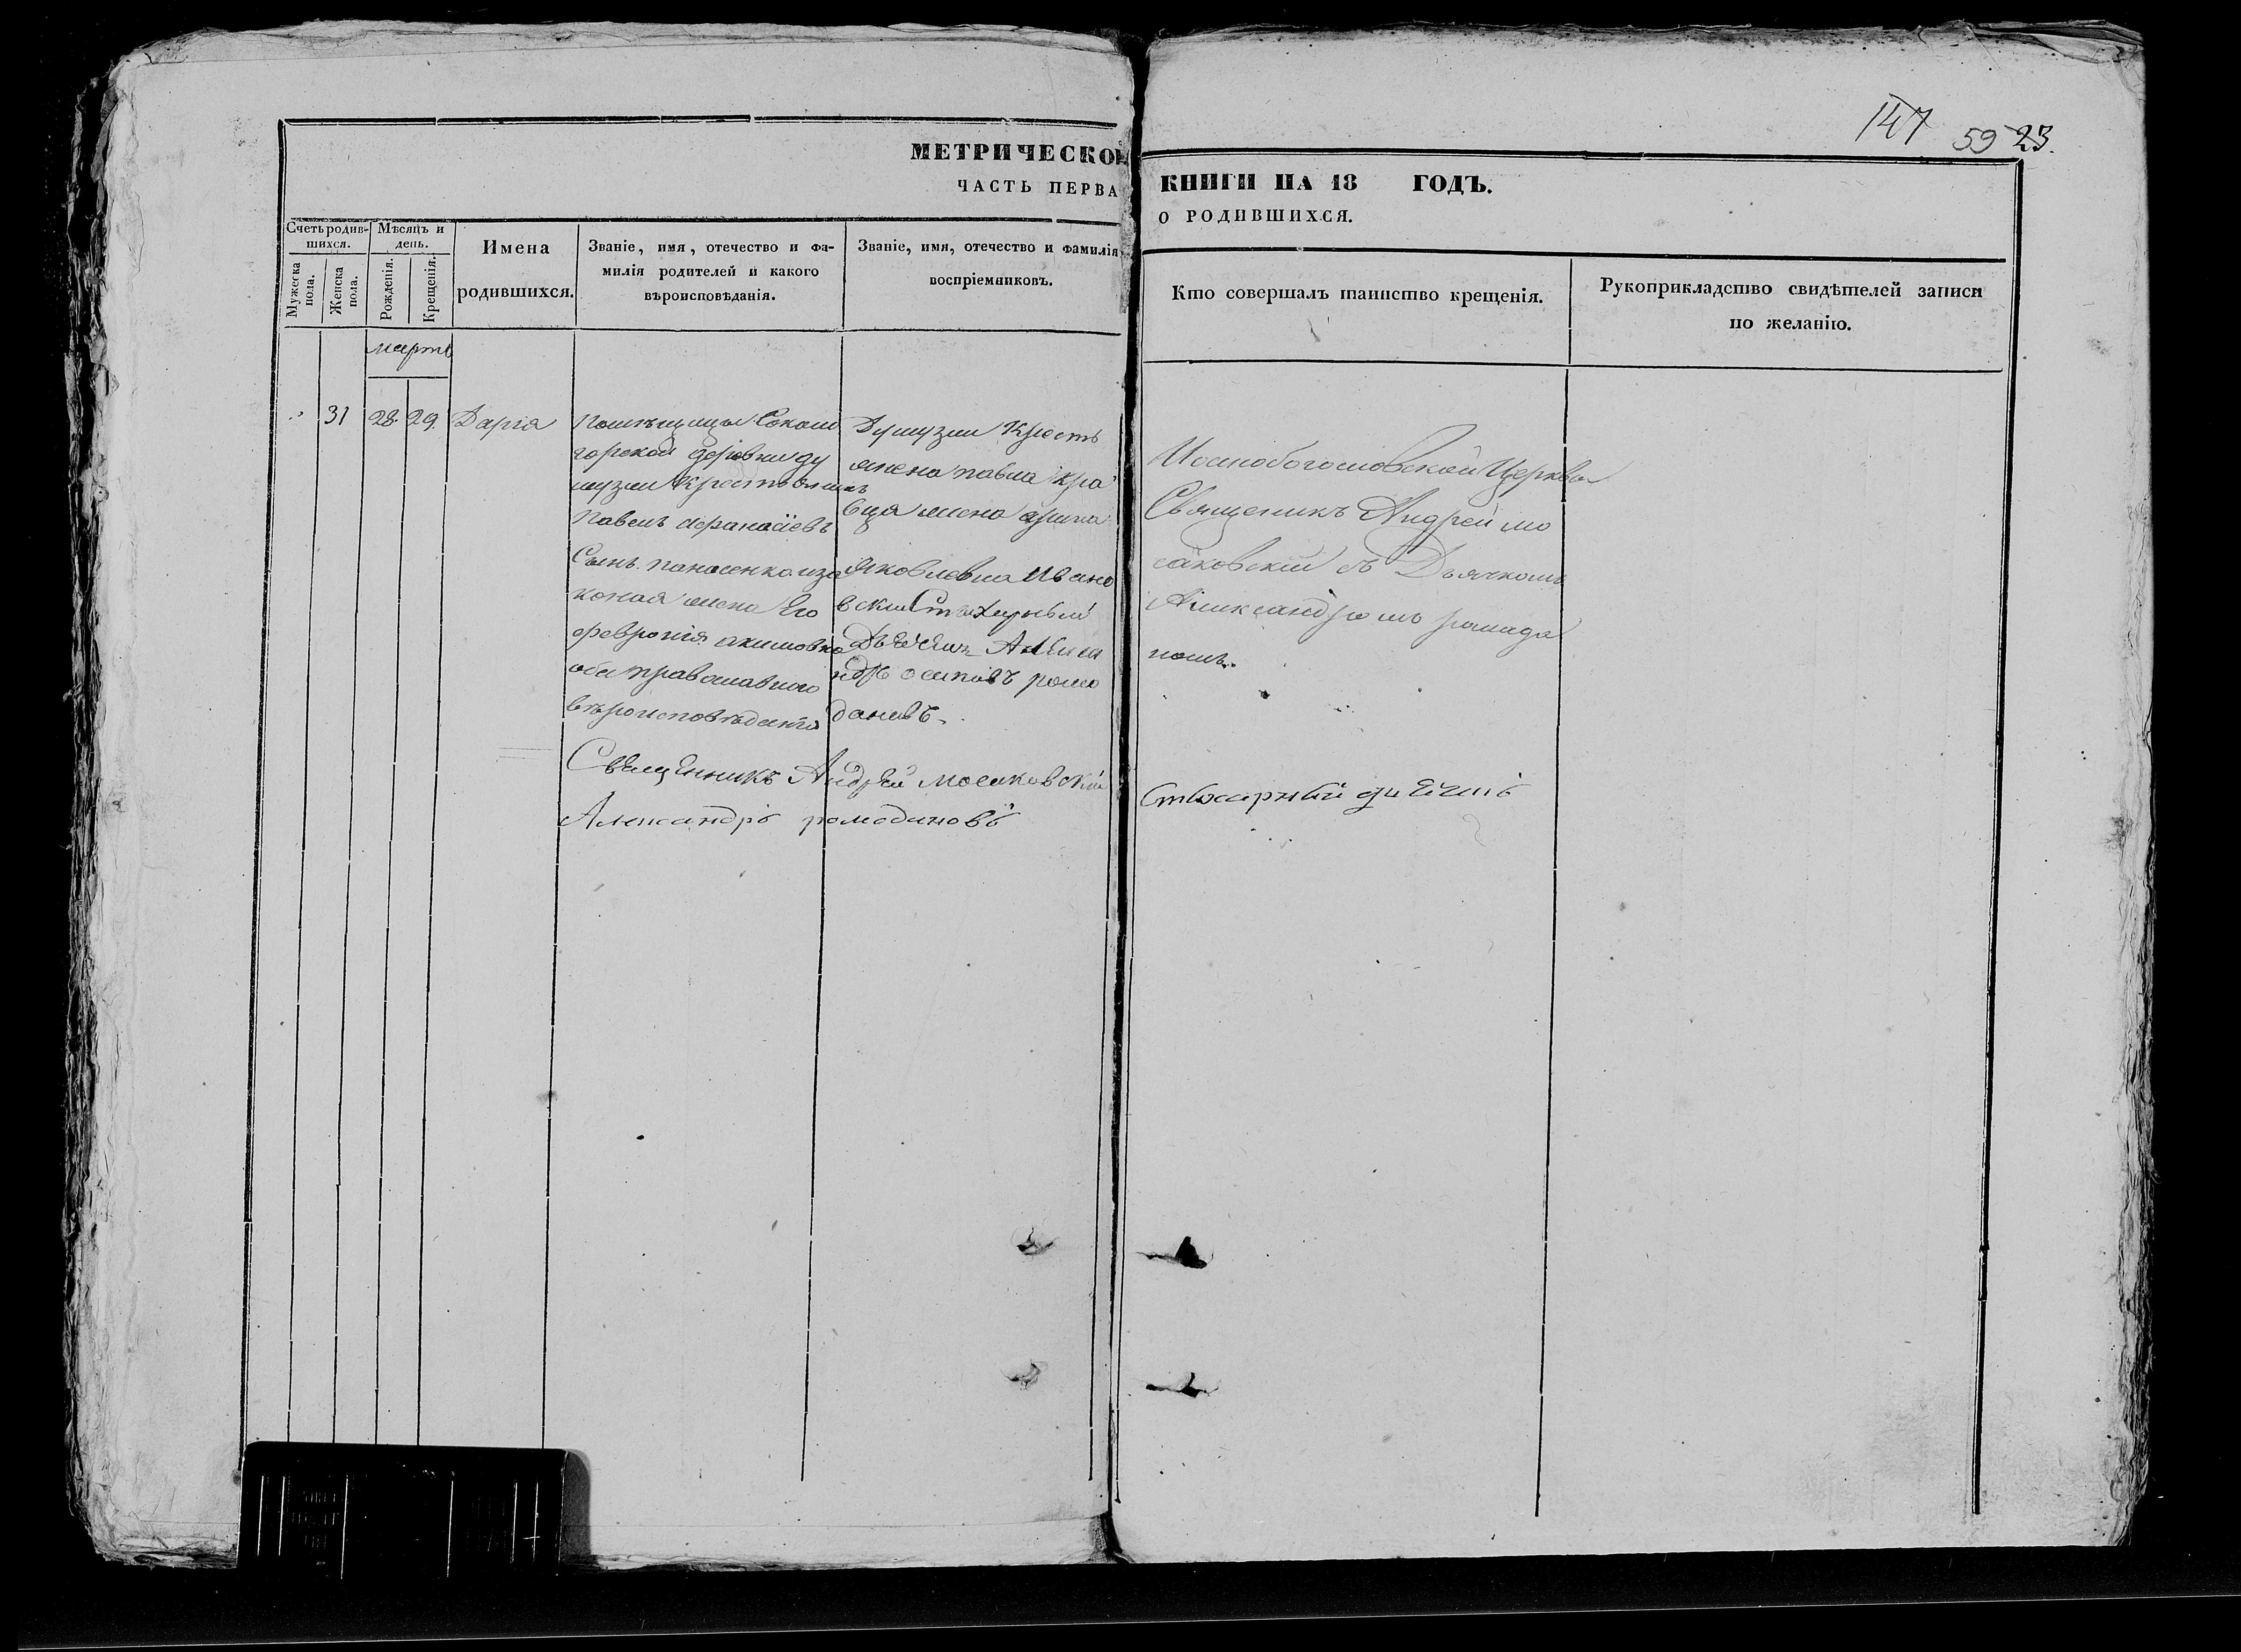 147 59 23.
МЕТРИЧЕСКОЙ КНИГИ НА 18 ГОДЪ.
ЧАСТЬ ПЕРВА О РОДИВШИХСЯ.
Счетъ родив-
шихся.
Мужеска
пола.
Женска
пола.
Мѣсяцъ и
день.
Рожденія.
Крещенія.
Имена
родившихся.
Званіе, имя, отечество и фа-
милія родителей и какого
вѣроисповѣданія.
Званіе, имя, отечество и фамилія
воспріемниковъ.
Кто совершалъ таинство крещенія.
Рукоприкладство свидѣтелей записи
по желанію.
мартъ
31 28. 29. Дарія
Помѣщицы
горской деревни ду
Павелъ афанасіевъ
Сынъ панасенко и за
коная жена Его
феврония акимовна
оба православного
вѣроисповѣданія
Крестъ
янена павла кра
вца жена
яковлевна Ивано
Стихарный
Дьячекъ
осиповъ ромо
дановъ.
Иоанобогословской Церквы
Священикъ Андрей мо
саковский съ Дьячкомъ
Александромъ рамада
номъ.
Священникъ Андрей Мосаковский
Александръ ромодановъ
Стихарный дьячекъ